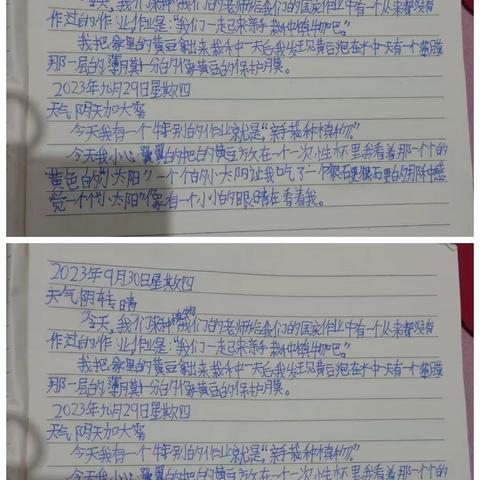 今天,我们科种植物我们的老师给我们的国庆作业中有一个从来都没有
作过的作业,作业是:“我们一走起来亲手栽种植物吧。”
我把家里的黄豆拿出来栽水中一天后我发现黄豆泡在水中一天有一个紫膜
那一层的薄月莫十分的像黄豆的保护月莫。
2023年九月29日星期四
天气 阴天加大雾
今天我有一个特别的作业就是“亲手栽种植物”。
今天我小心翼翼的把白的黄豆放在一个一次性杯里我看着那一个个的
黄色的“小太阳”一个个的小太阳让我吃了一个很石更很石更的
觉一个个“小太阳”像有一个小小的眼睛在看着我。
2023年9月30日星期四
天气 阴转晴
今天,我们科种植物我们的老师给我们的国庆作业中有一个从来都没有
作过的作业,作业是:“我们一走起来亲手栽种植物吧。”
我把家里的黄豆拿出来栽水中一天后我发现黄豆泡在水中一天有一个紫膜
那一层的薄月莫十分的像黄豆的保护月莫。
2023年九月29日星期四
天气 阴天加大雾
今天我有一个特别的作业就是“亲手栽种植物”。
今天我小心翼翼的把白的黄豆放在一个一次性杯里我看着那一个个的